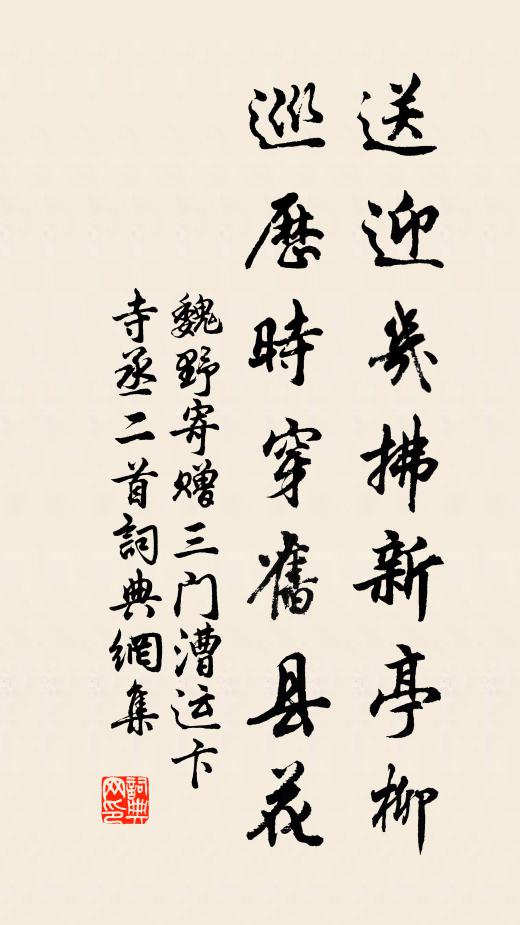 送迎幾拂新亭柳
巡歷時穿舊县花
魏野寄赠三门漕运卞
寺丞二首詞典網集
詞典
网印